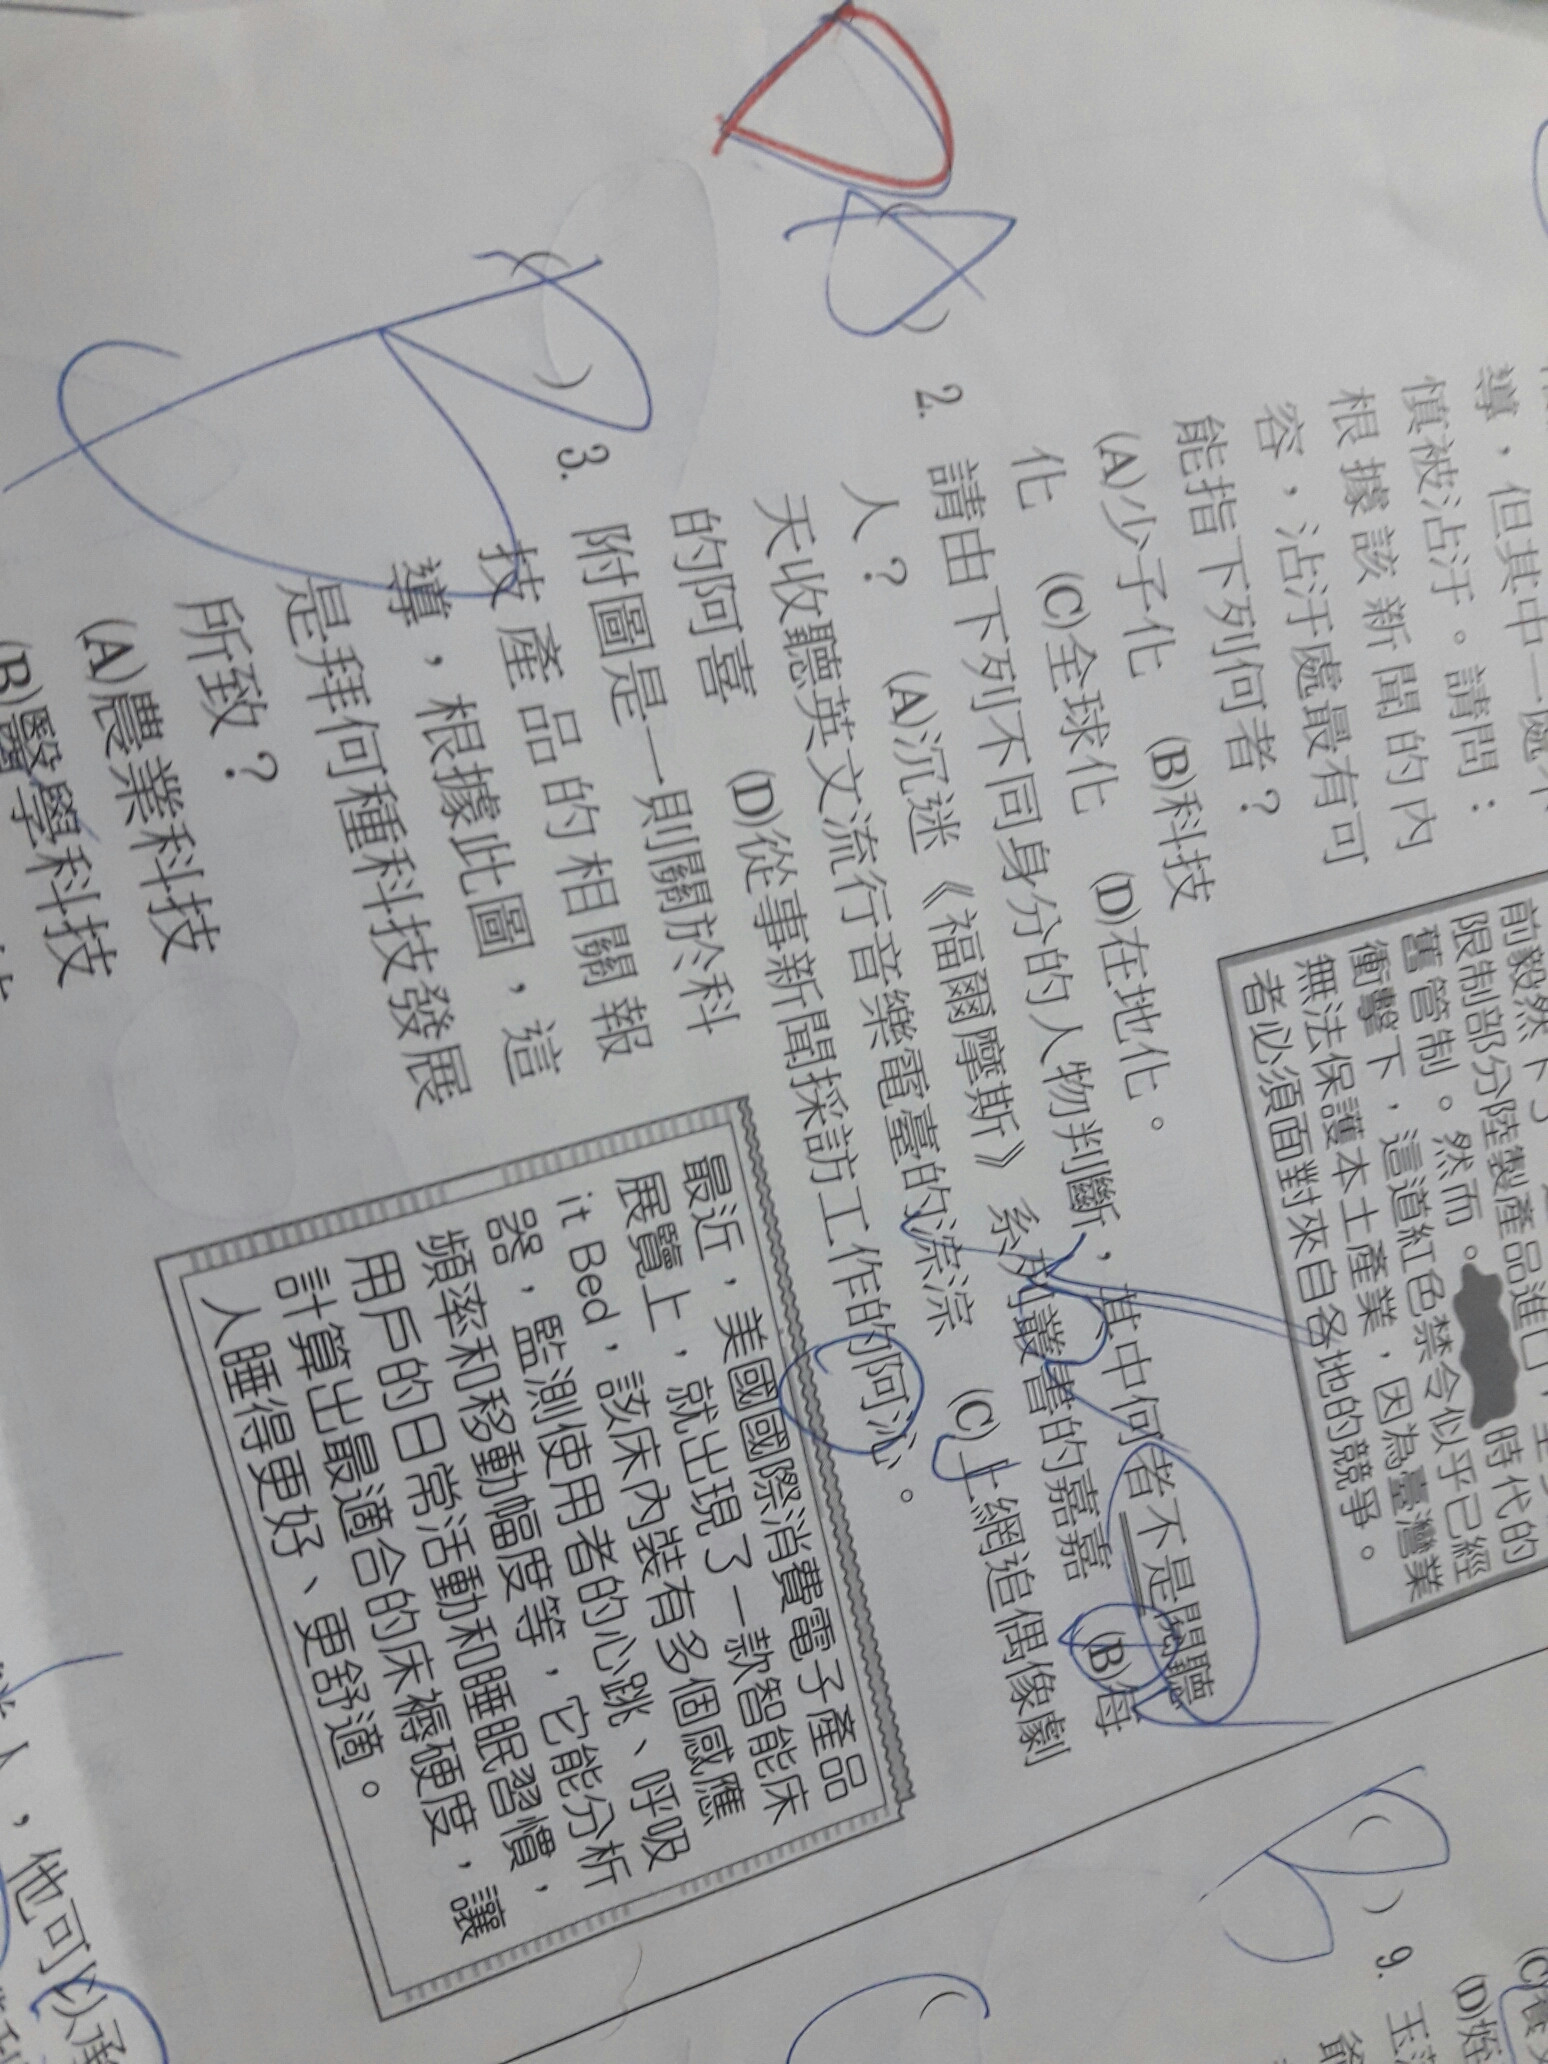 導，但其中一處不
慎被沾汙。請問：
根據該新聞的內
容，沾汙處最有可
能指下列何者？
(A)少子化 (B)科技
化 (C)全球化 (D)在地化。
前毅然下
限制部分陸製產品進口，
舊管制。然而。 時代的
衝擊下，這道紅色禁令似乎已經
無法保護本土產業，因為臺灣業
者必須面對來自各地的競爭。
D
2. 請由下列不同身分的人物判斷，其中何者不是閱聽
人？ (A)沉迷《福爾摩斯》系列叢書的嘉嘉 (B)每
天收聽英文流行音樂電臺的淙淙 (C)上網追偶像劇
的阿喜 (D)從事新聞採訪工作的阿沁。
B
3. 附圖是一則關於科
技產品的相關報
導，根據此圖，這
是拜何種科技發展
所致？
(A)農業科技
(B)醫學科技
最近，美國國際消費電子產品
展覽上，就出現了一款智能床
it Bed，該床內裝有多個感應
器，監測使用者的心跳、呼吸
頻率和移動幅度等，它能分析
用戶的日常活動和睡眠習慣，
計算出最適合的床褥硬度，讓
人睡得更好、更舒適。
B
9. 玉
(D)姪
人，他可以承